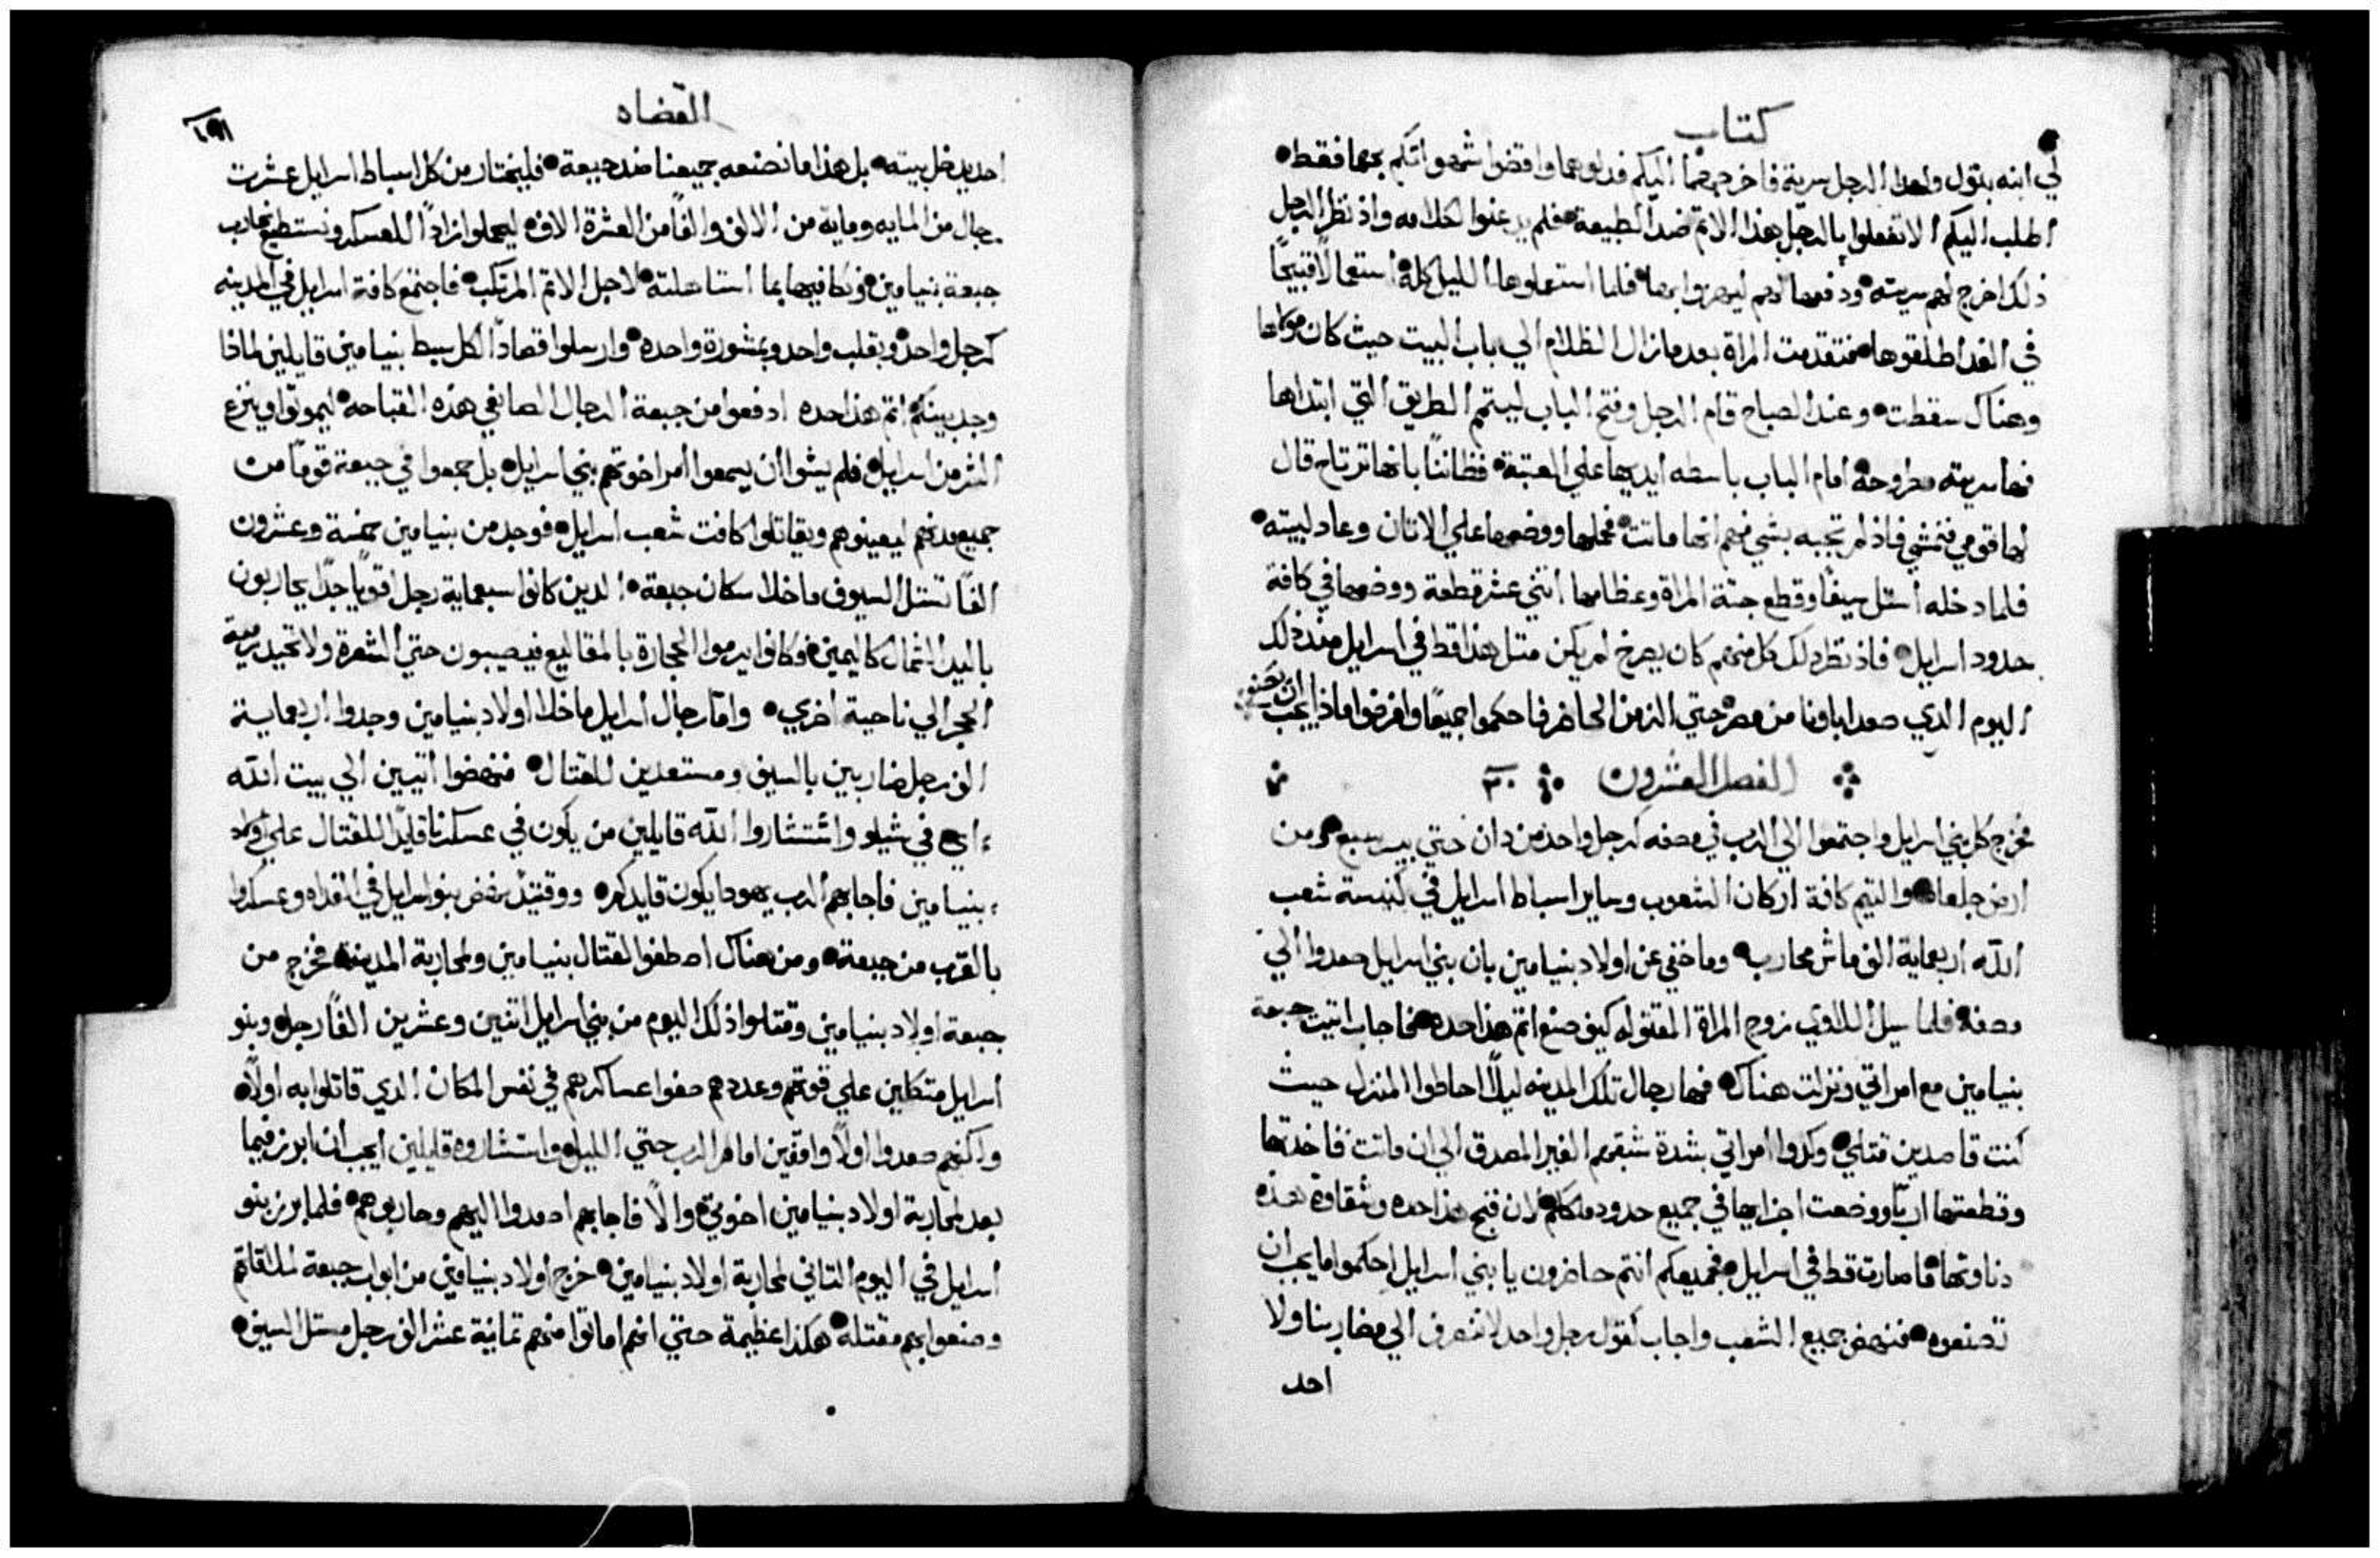 كتاب
لي ابنه بتول ولهدا الرجل سرية فاخرجهما اليكم فدلوهما واقضوا شهواتكم بهما فقط
اطلب اليكم الا تفعلوا بالرجل هذا الاتم ضد الطبيعة فلم يدعنوا لكلامه واذ نظر الرجل
ذلك اخرج لهم سريته ودفعها لهم ليهزوا بها فلما استعملوها الليل كله استعمالا قبيحا
في الغد اطلقوها فتقدمت المراة بعدما زال الظلام الي باب البيت حيث كان مولاها
وهناك سقطت وعند الصباح قام الرجل وفتح الباب ليتمم الطريق التي ابتداها
فها سريته مطروحة امام الباب باسطه ايديها علي العتبة فظاننا بانها ترتاح قال
لها قومي فنمشي فاذ لم تجبه بشي فهم انها ماتت فحملها ووضعها علي الاتان وعاد لبيته
فلما دخله استل سيفا وقطع جتة المراة وعظامها اتني عشر قطعة ووضعها في كافة
حدود اسرايل فاذ نظر ذلك كل منهم كان يصرخ لم يكن متل هذا قط في اسرايل منذ ذلك
اليوم الدي صعد اباونا من مصر حتي الزمن الحاضر فاحكموا جميعا وافرضوا ماذا يجب ان
الفصل العشرون ٢٠
فخرج كل بني اسرايل واجتمعوا الي الرب في مصفه كرجل واحد من دان حتي بير سبع ومن
ارض جلعاد والتيم كافة اركان الشعوب وساير اسباط اسرايل في كنيسة شعب
الله اربعماية الف ماش محارب وما خفي عن اولاد بنيامين بان بني اسرايل صعدوا الي
مصفه فلما سيل اللاوي زوج المراة المقتوله كيف صنع اتم هذا حده فاجاب اتيت جبعة
بنيامين مع امراتي ونزلت هناك فها رجال تلك المدينه ليلا احاطوا المنزل حيث
كنت قاصدين قتلي وكدوا امراتي بشدة شبقهم الغير المصدق الي ان ماتت فاخدتها
وقطعتها اربا ووضعت اجزايها في جميع حدود ملككم لان قبح هذا حده وشقاوة هذه
دناوتها ما صارت قط في اسرايل فجميعكم انتم حاضرون يا بني اسرايل احكموا ما يجب ان
تصنعوه فنهض جميع الشعب واجاب كقول رجل واحد لا ننصرف الي مضاربنا ولا
احد
القضاه
احد يدخل بيته بل هذا ما نصنعه جميعنا ضد جبعة فليختار من كل اسباط اسرايل عشرت
رجال من المايه وماية من الالف والفا من العشرة الاف ليحملوا ازادا للعسكر ونستطيع نحارب
جبعة بنيامين ونكافيها بما استاهلته لاجل الاتم المرتكب فاجتمع كافة اسرايل في المدينه
كرجل واحد وبقلب واحد وبمشورة واحده وارسلوا قصادا لكل سبط بنيامين قايلين لماذا
وجد بينكم اتم هذا حده ادفعوا من جبعة الرجال الصانعي هذه القباحه ليموتوا وينزع
الشر من اسرايل فلم يشوا ان يسمعوا امر اخوتهم بني اسرايل بل جمعوا في جبعة قوما من
جميع مدنهم ليعينوهم ويقاتلوا كافت شعب اسرايل فوجد من بنيامين خمسة وعشرون
الفا تستل السيوف ماخلا سكان جبعة الدين كانوا سبعماية رجل اقويا جدا يحاربون
باليد الشمال كاليمين وكانوا يرموا الحجارة بالمقاليع فيصيبون حتي الشعرة ولا تحيد رمية
الحجر الي ناحية اخري واما رجال اسرايل ماخلا اولاد بنيامين وجدوا اربعماية
الف رجل ضاربين بالسيف ومستعدين للقتال فنهضوا اتيين الي بيت الله
اي في شيلو واستشاروا الله قايلين من يكون في عسكرنا قايدا للقتال علي اولاد
بنيامين فاجابهم الرب يهودا يكون قايدكم ووقتيذ نهض بنو اسرايل في الغداه وعسكروا
بالقرب من جبعة ومن هناك اصطفوا لقتال بنيامين ولمحاربة المدينه فخرج من
جبعة اولاد بنيامين وقتلوا ذلك اليوم من بني اسرايل اتنين وعشرين الفا رجل وبنو
اسرايل متكلين علي قوتهم وعددهم صفوا عساكرهم في نفس المكان الدي قاتلوا به اولا
ولكنهم صعدوا اولا واقفين امام الرب حتي الليل واستشاروه قايلين ايجب ان ابرز فيما
بعد لمحاربة اولاد بنيامين اخوتي والا فاجابهم اصعدوا اليهم وحاربوهم فلما برز بنو
اسرايل في اليوم التاني لمحاربة اولاد بنيامين خرج اولاد بنيامين من ابواب جبعة لملاقاتهم
وصنعوا بهم مقتلة هكذا عظيمة حتي انهم اماتوا منهم تمانية عشر الف رجل مستل السيف